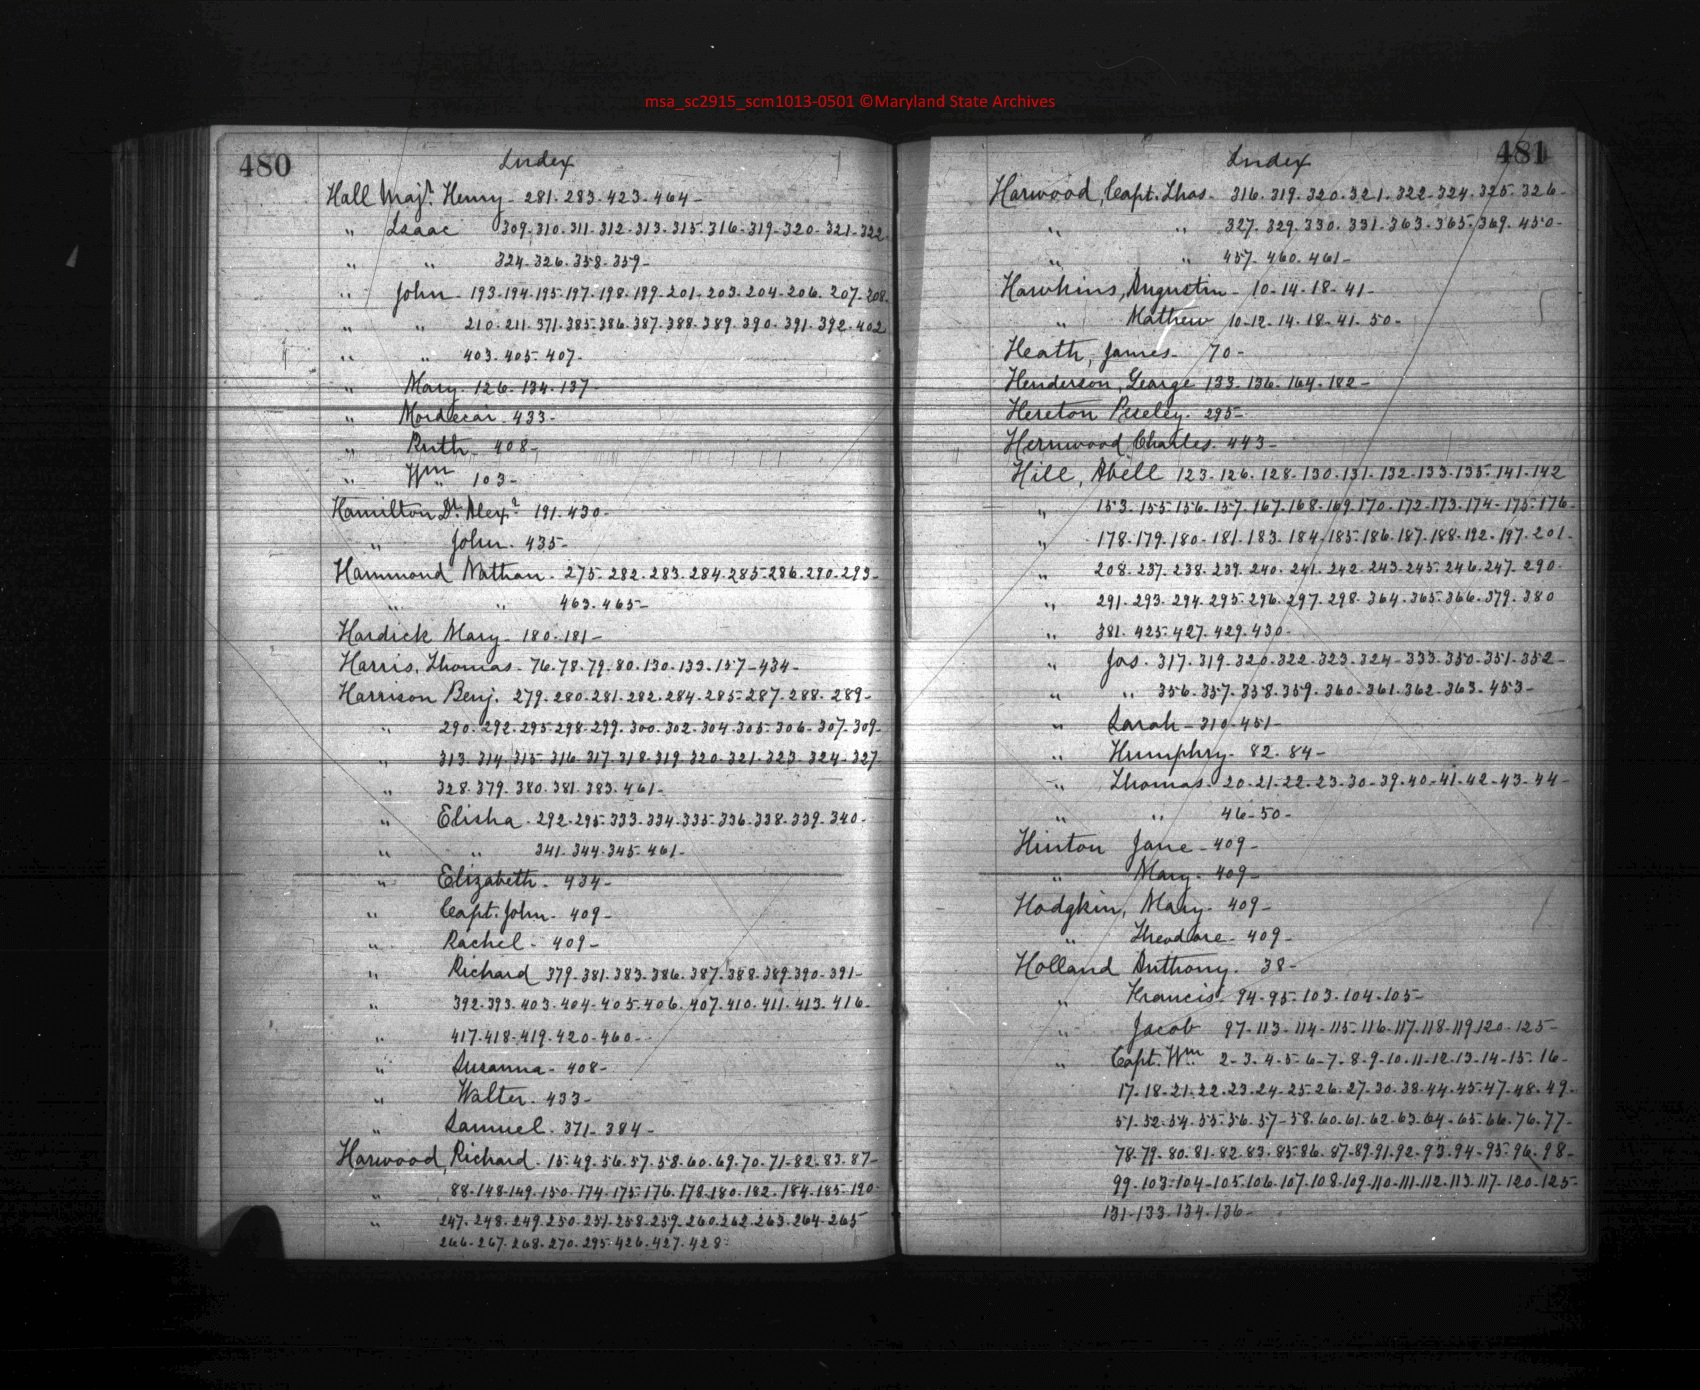 msa_sc2915_scm1013-0501 ©Maryland State Archives
480
Index
Hall Majr. Henry - 281. 283. 423. 464 -
" Isaac 309. 310. 311. 312. 313. 315. 316. 319. 320. 321. 322
" " 324. 326. 358. 359 -
" John - 193. 194. 195. 197. 198. 199. 201. 203. 204. 206. 207. 208.
" " 210. 211. 371. 385. 386. 387. 388. 389. 390. 391. 392. 402
" " 403. 405. 407.
" Mary. 126. 134. 137
" Mordecai. 433 -
" Ruth. 408 -
" Wm 103 -
Hamilton Dr. Alexr 191. 430 -
" John. 435 -
Hammond Nathan. 275. 282. 283. 284. 285. 286. 290. 293 -
" " 463. 465 -
Hardick Mary - 180. 181 -
Harris, Thomas. 76. 78. 79. 80. 130. 133. 157 - 434 -
Harrison Benj. 279. 280. 281. 282. 284. 285. 287. 288. 289 -
" 290. 292. 295. 298. 299. 300. 302. 304. 305. 306. 307. 309 -
" 313. 314. 315. 316. 317. 318. 319. 320. 321. 323. 324. 327.
" 328. 379. 380. 381. 383. 461 -
" Elisha. 292. 295. 333. 334. 335. 336. 338. 339. 340 -
" " 341. 344. 345. 461 -
" Elizabeth. 434 -
" Capt. John. 409 -
" Rachel. 409 -
" Richard 379. 381. 383. 386. 387. 388. 389. 390. 391 -
" 392. 393. 403. 404. 405. 406. 407. 410. 411. 413. 416 -
417. 418. 419. 420. 460 -
" Susanna. 408 -
" Walter. 433 -
" Samuel. 371. 384 -
Harwood, Richard. 15. 49. 56. 57. 58. 60. 69. 70. 71. 82. 83. 87 -
" 88. 148. 149. 150. 174. 175. 176. 178. 180. 182. 184. 185. 190
" 247. 248. 249. 250. 251. 258. 259. 260. 262. 263. 264. 265
266. 267. 268. 270. 295. 426. 427. 428.
481
Index
Harwood, Capt. Thos. 316. 319. 320. 321. 322. 324. 325. 326 -
" " 327. 329. 330. 331. 363. 365. 369. 450 -
" " 457. 460. 461 -
Hawkins, Augustin - 10. 14. 18. 41 -
" Mathew 10. 12. 14. 18. 41. 50 -
Heath, James - 70 -
Henderson, George 133. 136. 164. 182 -
Hereton 295 -
Hernwood, Charles. 443 -
Hill, Abell 123. 126. 128. 130. 131. 132. 133. 135. 141. 142
" 153. 155. 156. 157. 167. 168. 169. 170. 172. 173. 174. 175. 176 -
" 178. 179. 180. 181. 183. 184. 185. 186. 187. 188. 192. 197. 201.
" 208. 237. 238. 239. 240. 241. 242. 243. 245. 246. 247. 290
" 291. 293. 294. 295. 296. 297. 298. 364. 365. 366. 379. 380
" 381. 425. 427. 429. 430 -
" Jos. 317. 319. 320. 322. 323. 324. 333. 350. 351. 352 -
" " 356. 357. 358. 359. 360. 361. 362. 363. 453 -
" Sarah - 310. 451 -
" Humphry - 82. 84 -
" Thomas - 20. 21. 22. 23. 30. 39. 40. 41. 42. 43. 44 -
" " 46. 50 -
Hinton Jane - 409 -
" Mary. 409 -
Hodgkin, Mary. 409 -
" Theodore - 409 -
Holland Anthony. 38 -
" Francis - 94. 95. 103. 104. 105 -
" Jacob 97. 113. 114. 115. 116. 117. 118. 119. 120. 125 -
" Capt. Wm 2. 3. 4. 5. 6. 7. 8. 9. 10. 11. 12. 13. 14. 15. 16 -
17. 18. 21. 22. 23. 24. 25. 26. 27. 30. 38. 44. 45. 47. 48. 49 -
51. 52. 54. 55. 56. 57. 58. 60. 61. 62. 63. 64. 65. 66. 76. 77 -
78. 79. 80. 81. 82. 83. 85. 86. 87. 89. 91. 92. 93. 94. 95. 96. 98 -
99. 103. 104. 105. 106. 107. 108. 109. 110. 111. 112. 113. 117. 120. 125 -
131. 133. 134. 136 -